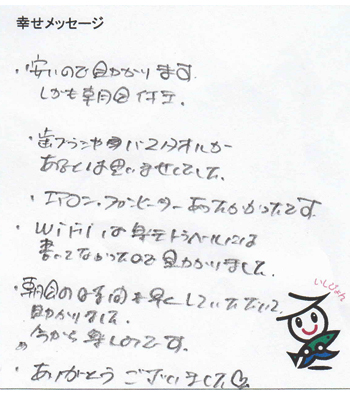 幸せメッセージ
・安いので助かります。
しかも朝食付き。
・歯ブラシやバスタオルが
あるとは思いませんでした。
・エアコン、ファンヒーターあったかかったです。
・WiFiは楽天トラベルには
書いてなかったので助かりました。
・朝食の時間を早くしていただいて
助かりました。
今から楽しみです。
・ありがとうございました♡
いしぴょん